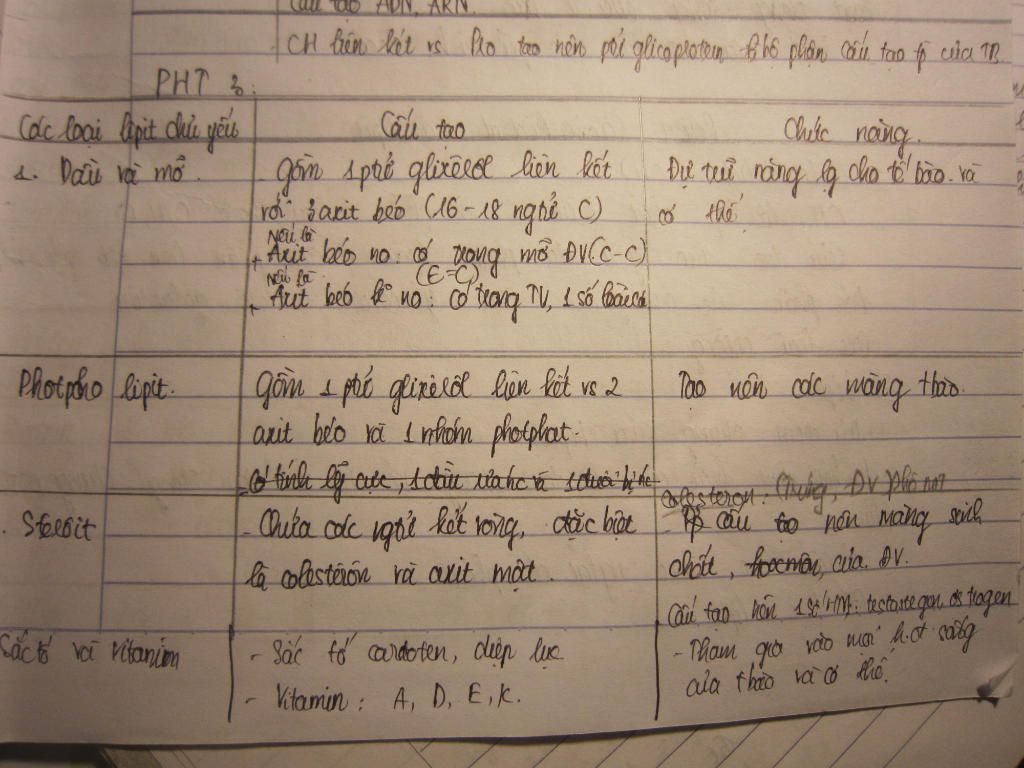 Cấu tạo ADN, ARN.
CH liên kết vs Pro tạo nên ptử glicoprotein là bộ phận cấu tạo tp của TB.
PHT 3:
Các loại lipit chủ yếu
Cấu tạo
Chức năng.
1. Dầu và mỡ.
- Gồm 1 ptử glixêrol liên kết
với 3 axit béo (16-18 ngtử C)
Nếu là
+ Axit béo no: có trong mỡ ĐV (C-C)
Nếu là
(C=C)
+ Axit béo k no: có trong TV, 1 số loài cá
Dự trữ năng lg cho tế bào và
cơ thể
Photpho lipit.
Gồm 1 ptử glixêrol liên kết vs 2
axit béo và 1 nhóm photphat.
- Có tính lg cực, 1 đầu ưa nc và 1 đuôi kị nc
Tạo nên các màng tbào.
. Steroit
- Chứa các ngtử kết vòng, đặc biệt
là colesteron và axit mật.
colesteron: ĐV
cấu tạo nên màng sinh
chất, hoocmon, của ĐV.
Cấu tạo nên 1 số HM: testostegen, ostrogen
Sắc tố và vitanim
- Sắc tố caroten, diệp lục
- Vitamin: A, D, E, K.
- Tham gia vào mọi h.đ sống
của tbào và cơ thể.